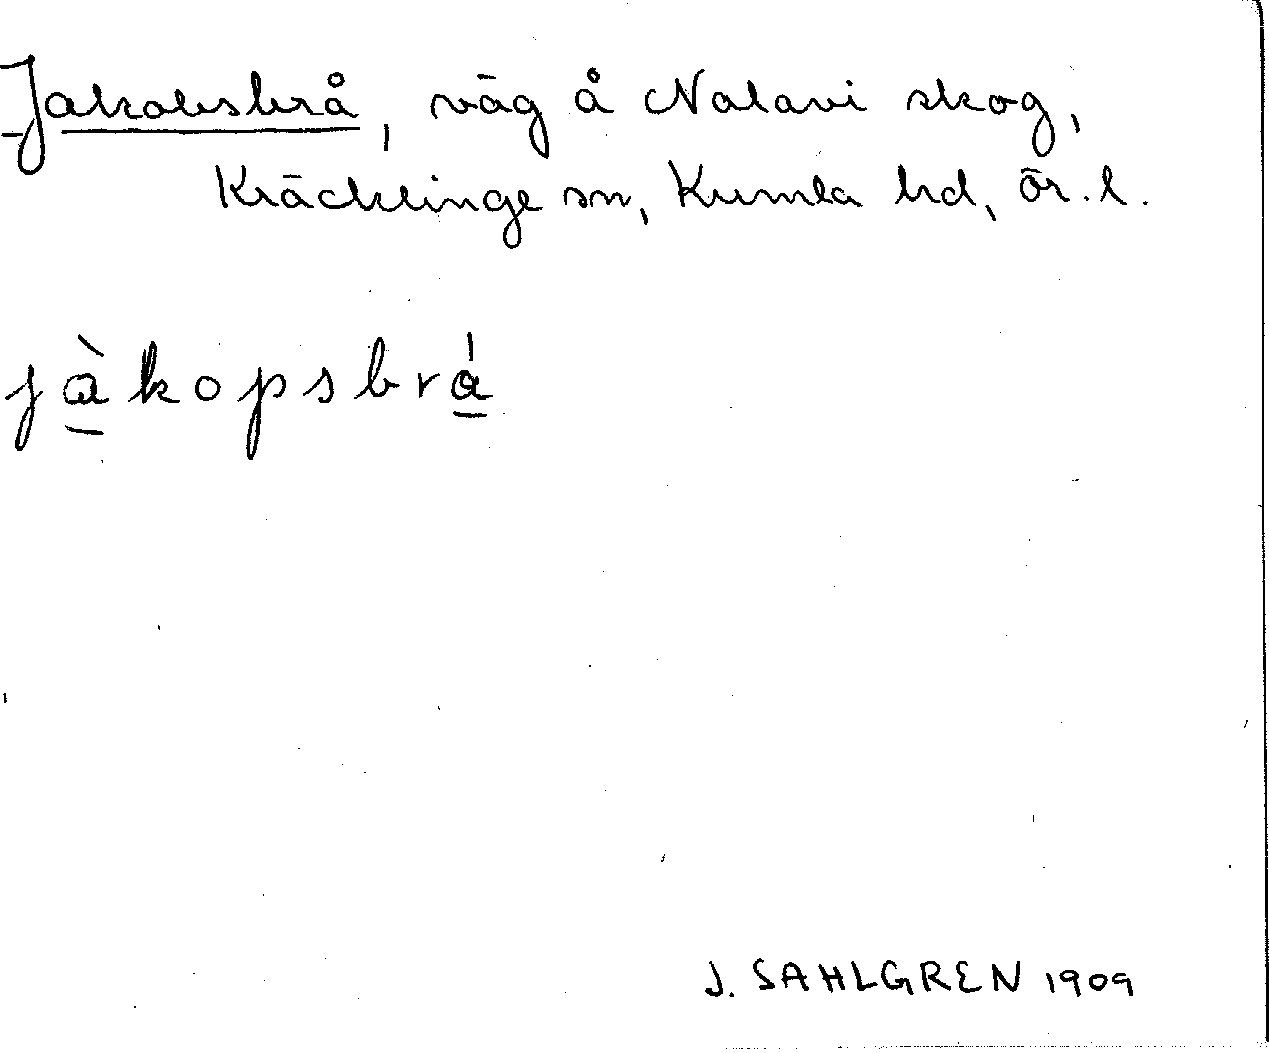 Jakobsbrå, väg å Nalavi skog,
Kräcklinge sn, Kumla hd, Ör. l.
jàkopsbrá
J. SAHLGREN 1909